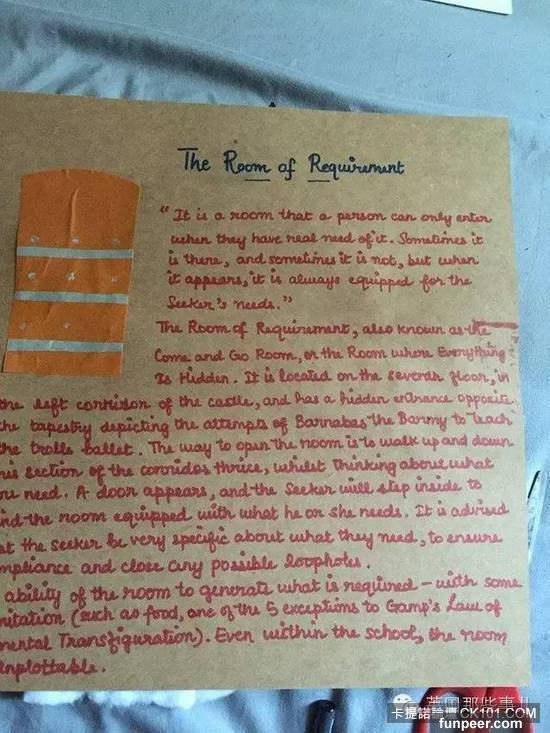 The Room of Requirement
"It is a room that a person can only enter
when they have real need of it. Sometimes it
is there, and sometimes it is not, but when
it appears, it is always equipped for the
Seeker's needs."
The Room of Requirement, also known as the
Come and Go Room, or the Room where Everything
Is Hidden. It is located on the seventh floor, in
the left corridor of the castle, and has a hidden entrance opposite
the tapestry depicting the attempts of Barnabas the Barmy to teach
the trolls ballet. The way to open the room is to walk up and down
his section of the corridor thrice, whilst thinking about what
ou need. A door appears, and the Seeker will step inside to
ind the room equipped with what he or she needs. It is advised
at the seeker be very specific about what they need, to ensure
mpliance and close any possible loopholes.
ability of the room to generate what is required - with some
mitation (such as food, one of the 5 exceptions to Gamp's Law of
mental Transfiguration). Even within the school, the room
unplottable.
英国那些事儿
卡提諾論壇 CK101.COM
funpeer.com